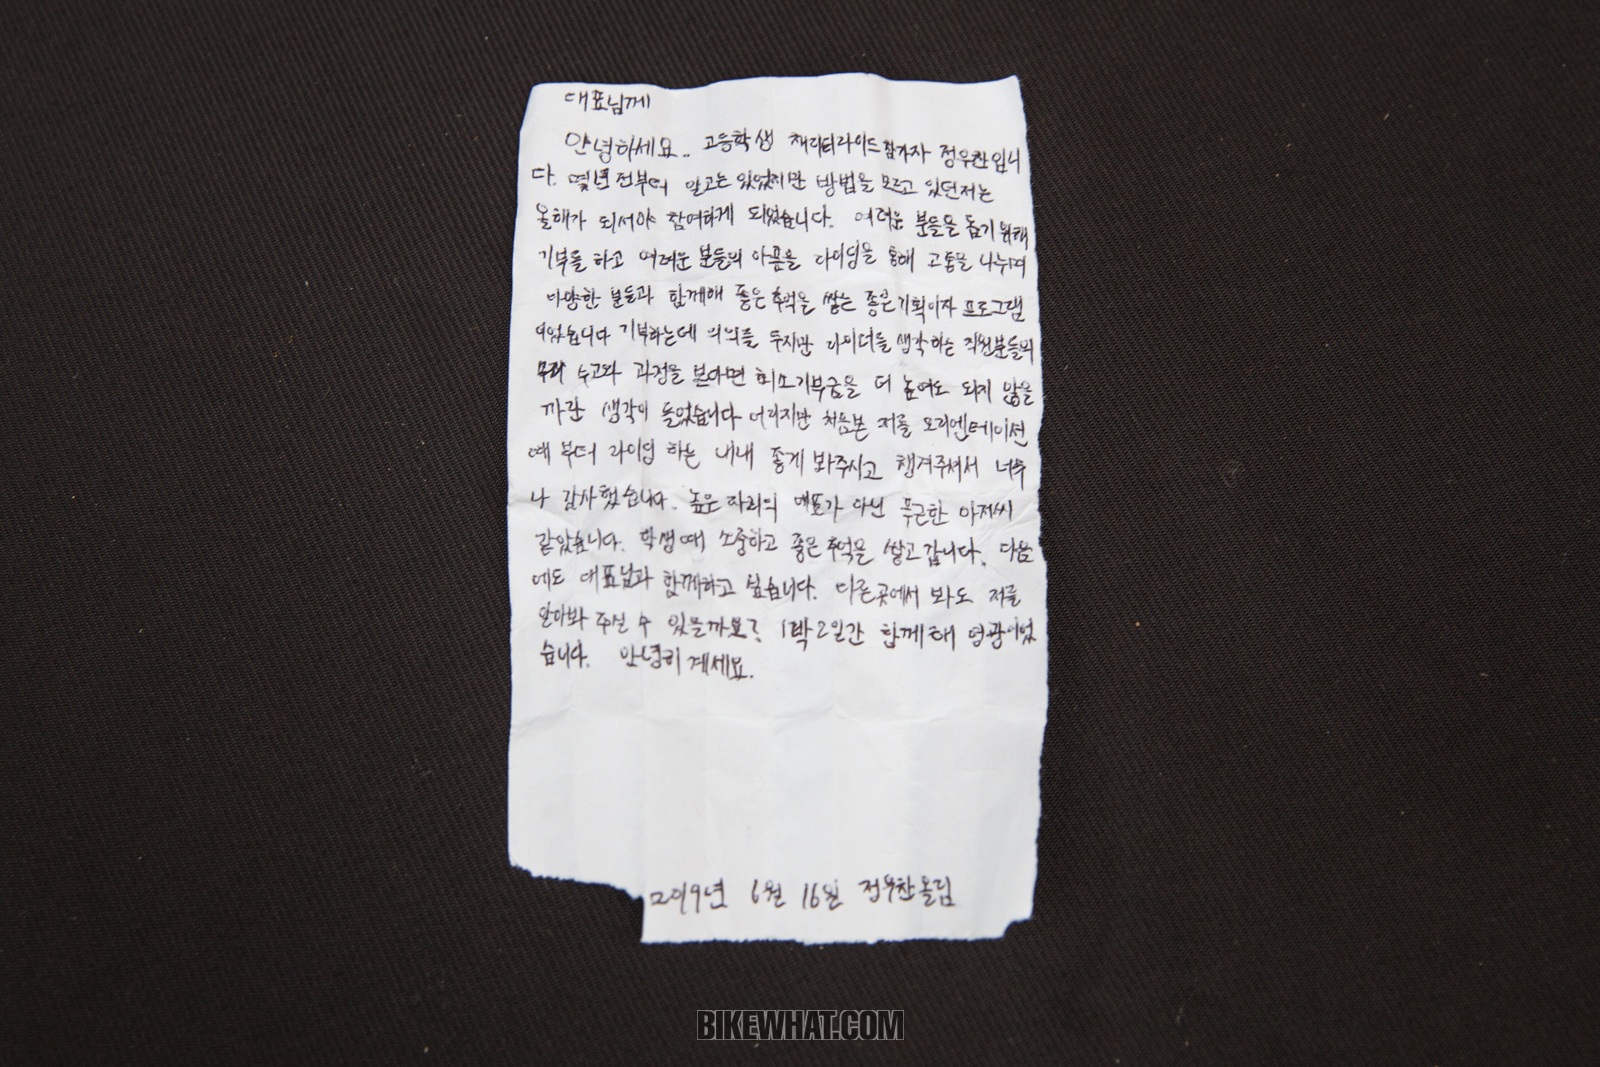 대표님께
안녕하세요. 고등학생 채리티라이드참가자 정우찬입니
다. 몇년전부터 알고는 있었지만 방법을 모르고 있던저는
올해가 되서야 참여하게 되었습니다. 어려운 분들을 돕기 위해
기부를 하고 어려운 분들의 아픔을 라이딩을 통해 고통을 나누며
다양한 분들과 함께해 좋은 추억을 쌓는 좋은기획이자 프로그램
이었습니다 기부하는데 의의를 두지만 라이더를 생각하는 직원분들의
수고와 과정을 본다면 최소기부금을 더 높여도 되지 않을
까란 생각이 들었습니다 어리지만 처음본 저를 오리엔테이션
때 부터 라이딩 하는 내내 좋게 봐주시고 챙겨주셔서 너무
나 감사했습니다. 높은 자리의 대표가 아닌 푸근한 아저씨
같았습니다. 학생때 소중하고 좋은 추억을 쌓고 갑니다. 다음
에도 대표님과 함께하고 싶습니다. 다른곳에서 봐도 저를
알아봐 주실 수 있을까요? 1박2일간 함께해 영광이었
습니다. 안녕히 계세요.
2019년 6월 16일 정우찬올림
BIKEWHAT.COM